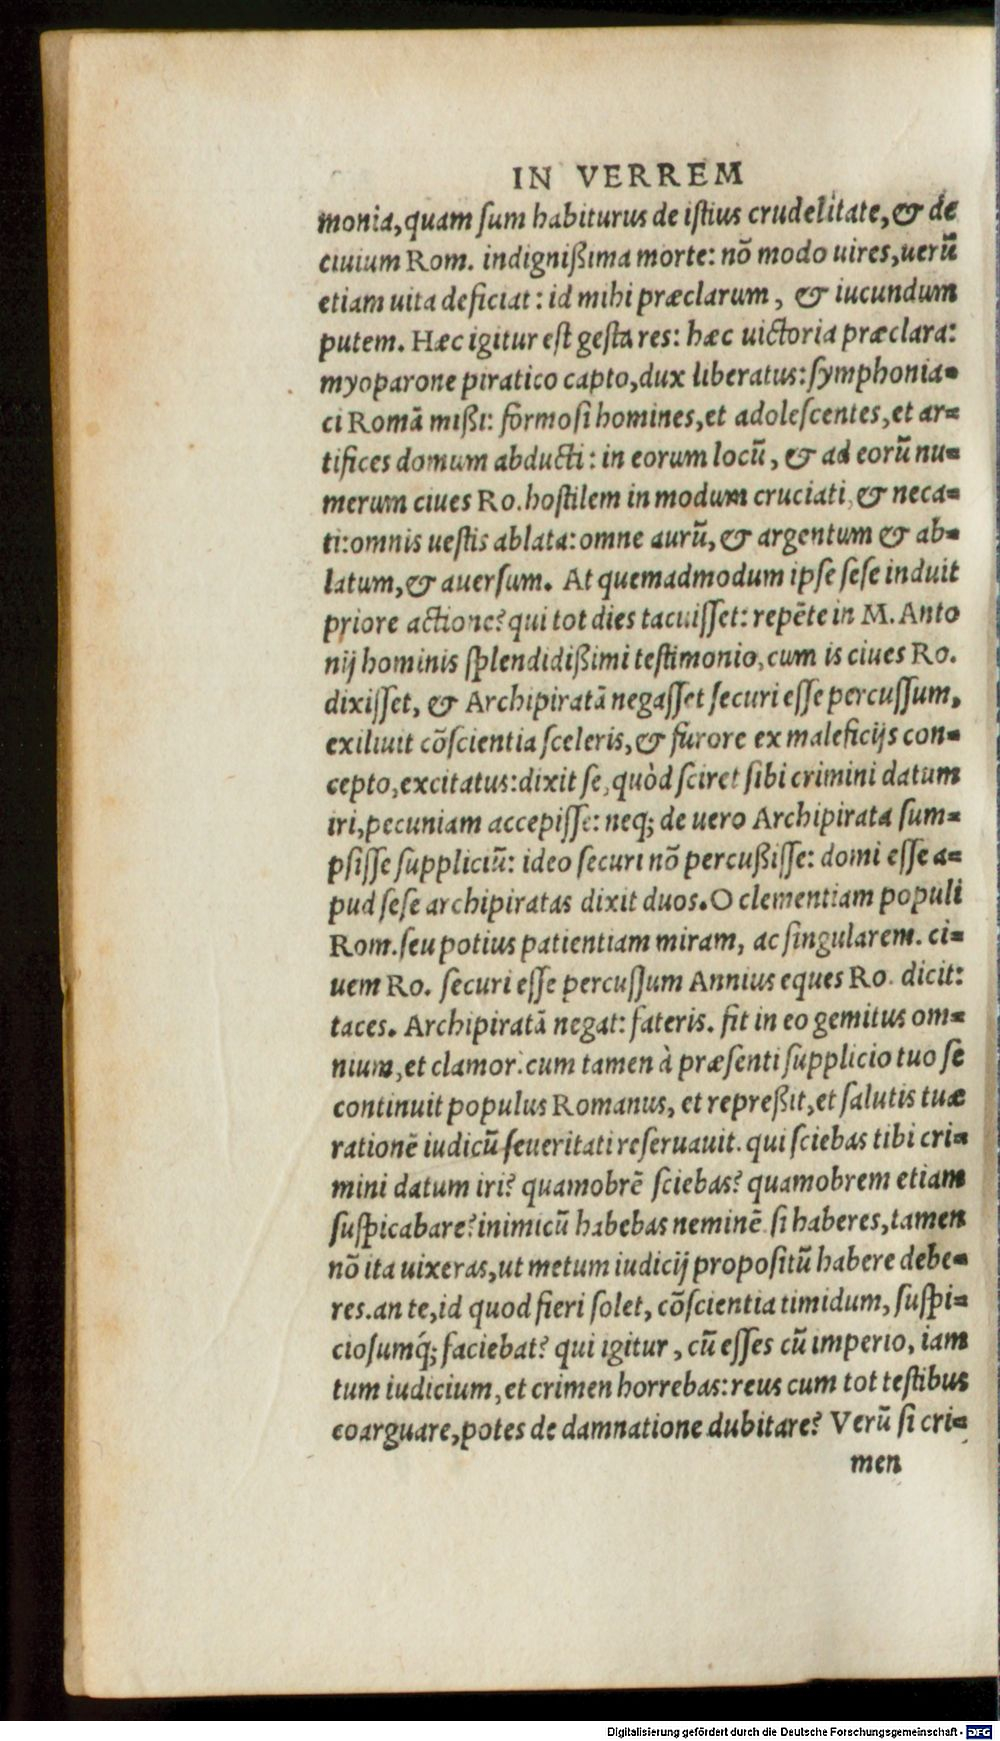 IN VERREM
monia, quam sum habiturus de istius crudelitate, & de
ciuium Rom. indignißima morte: nõ modo uires, uerũ
etiam uita deficiat: id mihi præclarum, & iucundum
putem. Hæc igitur est gesta res: hæc uictoria præclara:
myoparone piratico capto, dux liberatus: symphonia-
ci Romã mißi: formosi homines, et adolescentes, et ar-
tifices domum abducti: in eorum locũ, & ad eorũ nu-
merum ciues Ro. hostilem in modum cruciati, & neca-
ti: omnis uestis ablata: omne aurũ, & argentum & ab-
latum, & auersum. At quemadmodum ipse sese induit
priore actione? qui tot dies tacuisset: repẽte in M. Anto
nij hominis splendidißimi testimonio, cum is ciues Ro.
dixisset, & Archipiratã negasset securi esse percussum,
exiliuit cõscientia sceleris, & furore ex maleficijs con-
cepto, excitatus: dixit se, quòd sciret sibi crimini datum
iri, pecuniam accepisse: neq; de uero Archipirata sum-
psisse suppliciũ: ideo securi nõ percußisse: domi esse a-
pud sese archipiratas dixit duos. O clementiam populi
Rom. seu potius patientiam miram, ac singularem. ci-
uem Ro. securi esse percussum Annius eques Ro. dicit:
taces. Archipiratã negat: fateris. fit in eo gemitus om-
nium, et clamor. cum tamen à præsenti supplicio tuo se
continuit populus Romanus, et repreßit, et salutis tuæ
rationẽ iudicũ seueritati reseruauit. qui sciebas tibi cri-
mini datum iri? quamobrẽ sciebas? quamobrem etiam
suspicabare? inimicũ habebas neminẽ. si haberes, tamen
nõ ita uixeras, ut metum iudicij propositũ habere debe-
res. an te, id quod fieri solet, cõscientia timidum, suspi-
ciosumq́; faciebat? qui igitur, cũ esses cũ imperio, iam
tum iudicium, et crimen horrebas: reus cum tot testibus
coarguare, potes de damnatione dubitare? Verũ si cri-
men
Digitalisierung gefördert durch die Deutsche Forschungsgemeinschaft - DFG